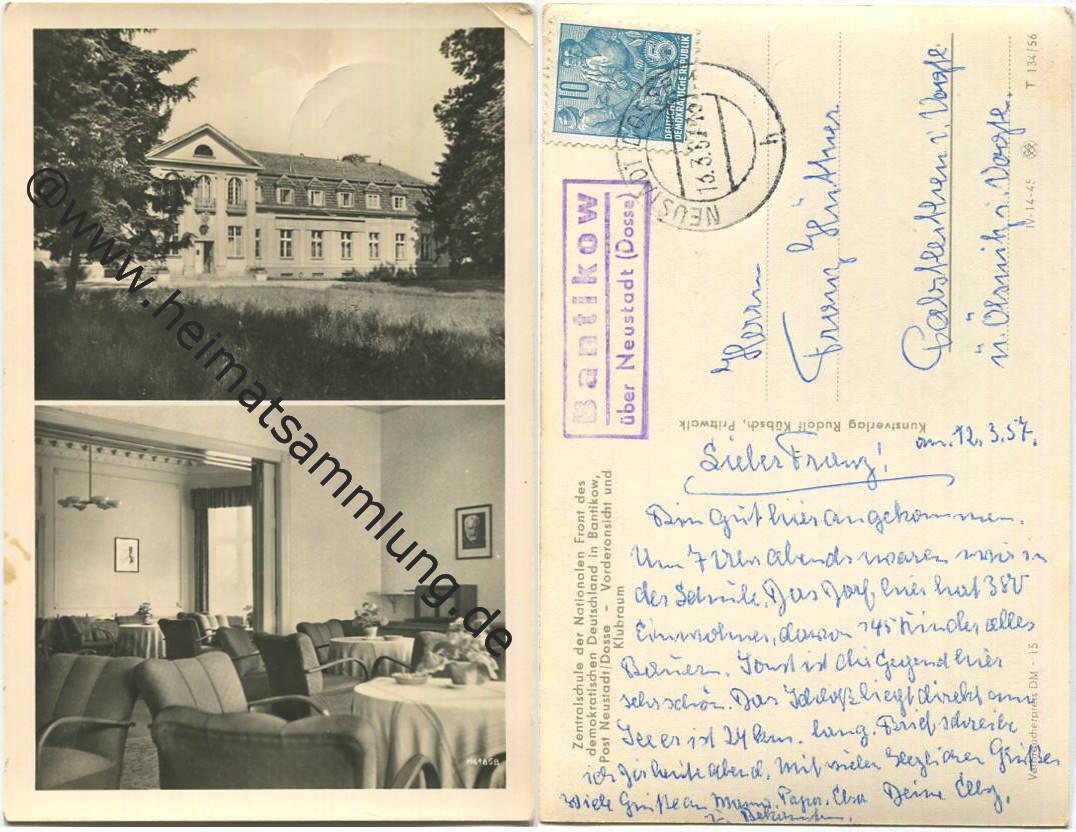 @www.heimatsammlung.de
M4185B
10
5
DEUTSCHE
DEMOKRATISCHE REPUBLIK
NEUSTADT (DOSSE)
16.3.57
h
Bantikow
über Neustadt (Dosse)
T 134/56
IV-14-45
Verbraucherpreis DM -.15
Kunstverlag Rudolf Kübsch, Pritzwalk
Zentralschule der Nationalen Front des
demokratischen Deutschland in Bantikow,
Post Neustadt/Dosse - Vorderansicht und
Klubraum
Herrn
Franz Günther
i. Vogtl.
ü. Ölsnitz i. Vogtl.
am. 12.3.57.
Lieber Franz!
Bin gut hier angekommen.
Um 7 Uhr abends waren wir in
der Schule. Das Dorf hier hat 380
Einwohner, davon 145 Kinder alles
Bauern. Sonst ist die Gegend hier
sehr schön. Das Schloß liegt direkt am
See er ist 24 km. lang. Brief schreibe
ich Dir heute abend. Mit vielen herzlichen Grüßen
Deine
Viele Grüße an Mama, Papa, Elsa
u. Bekannten.